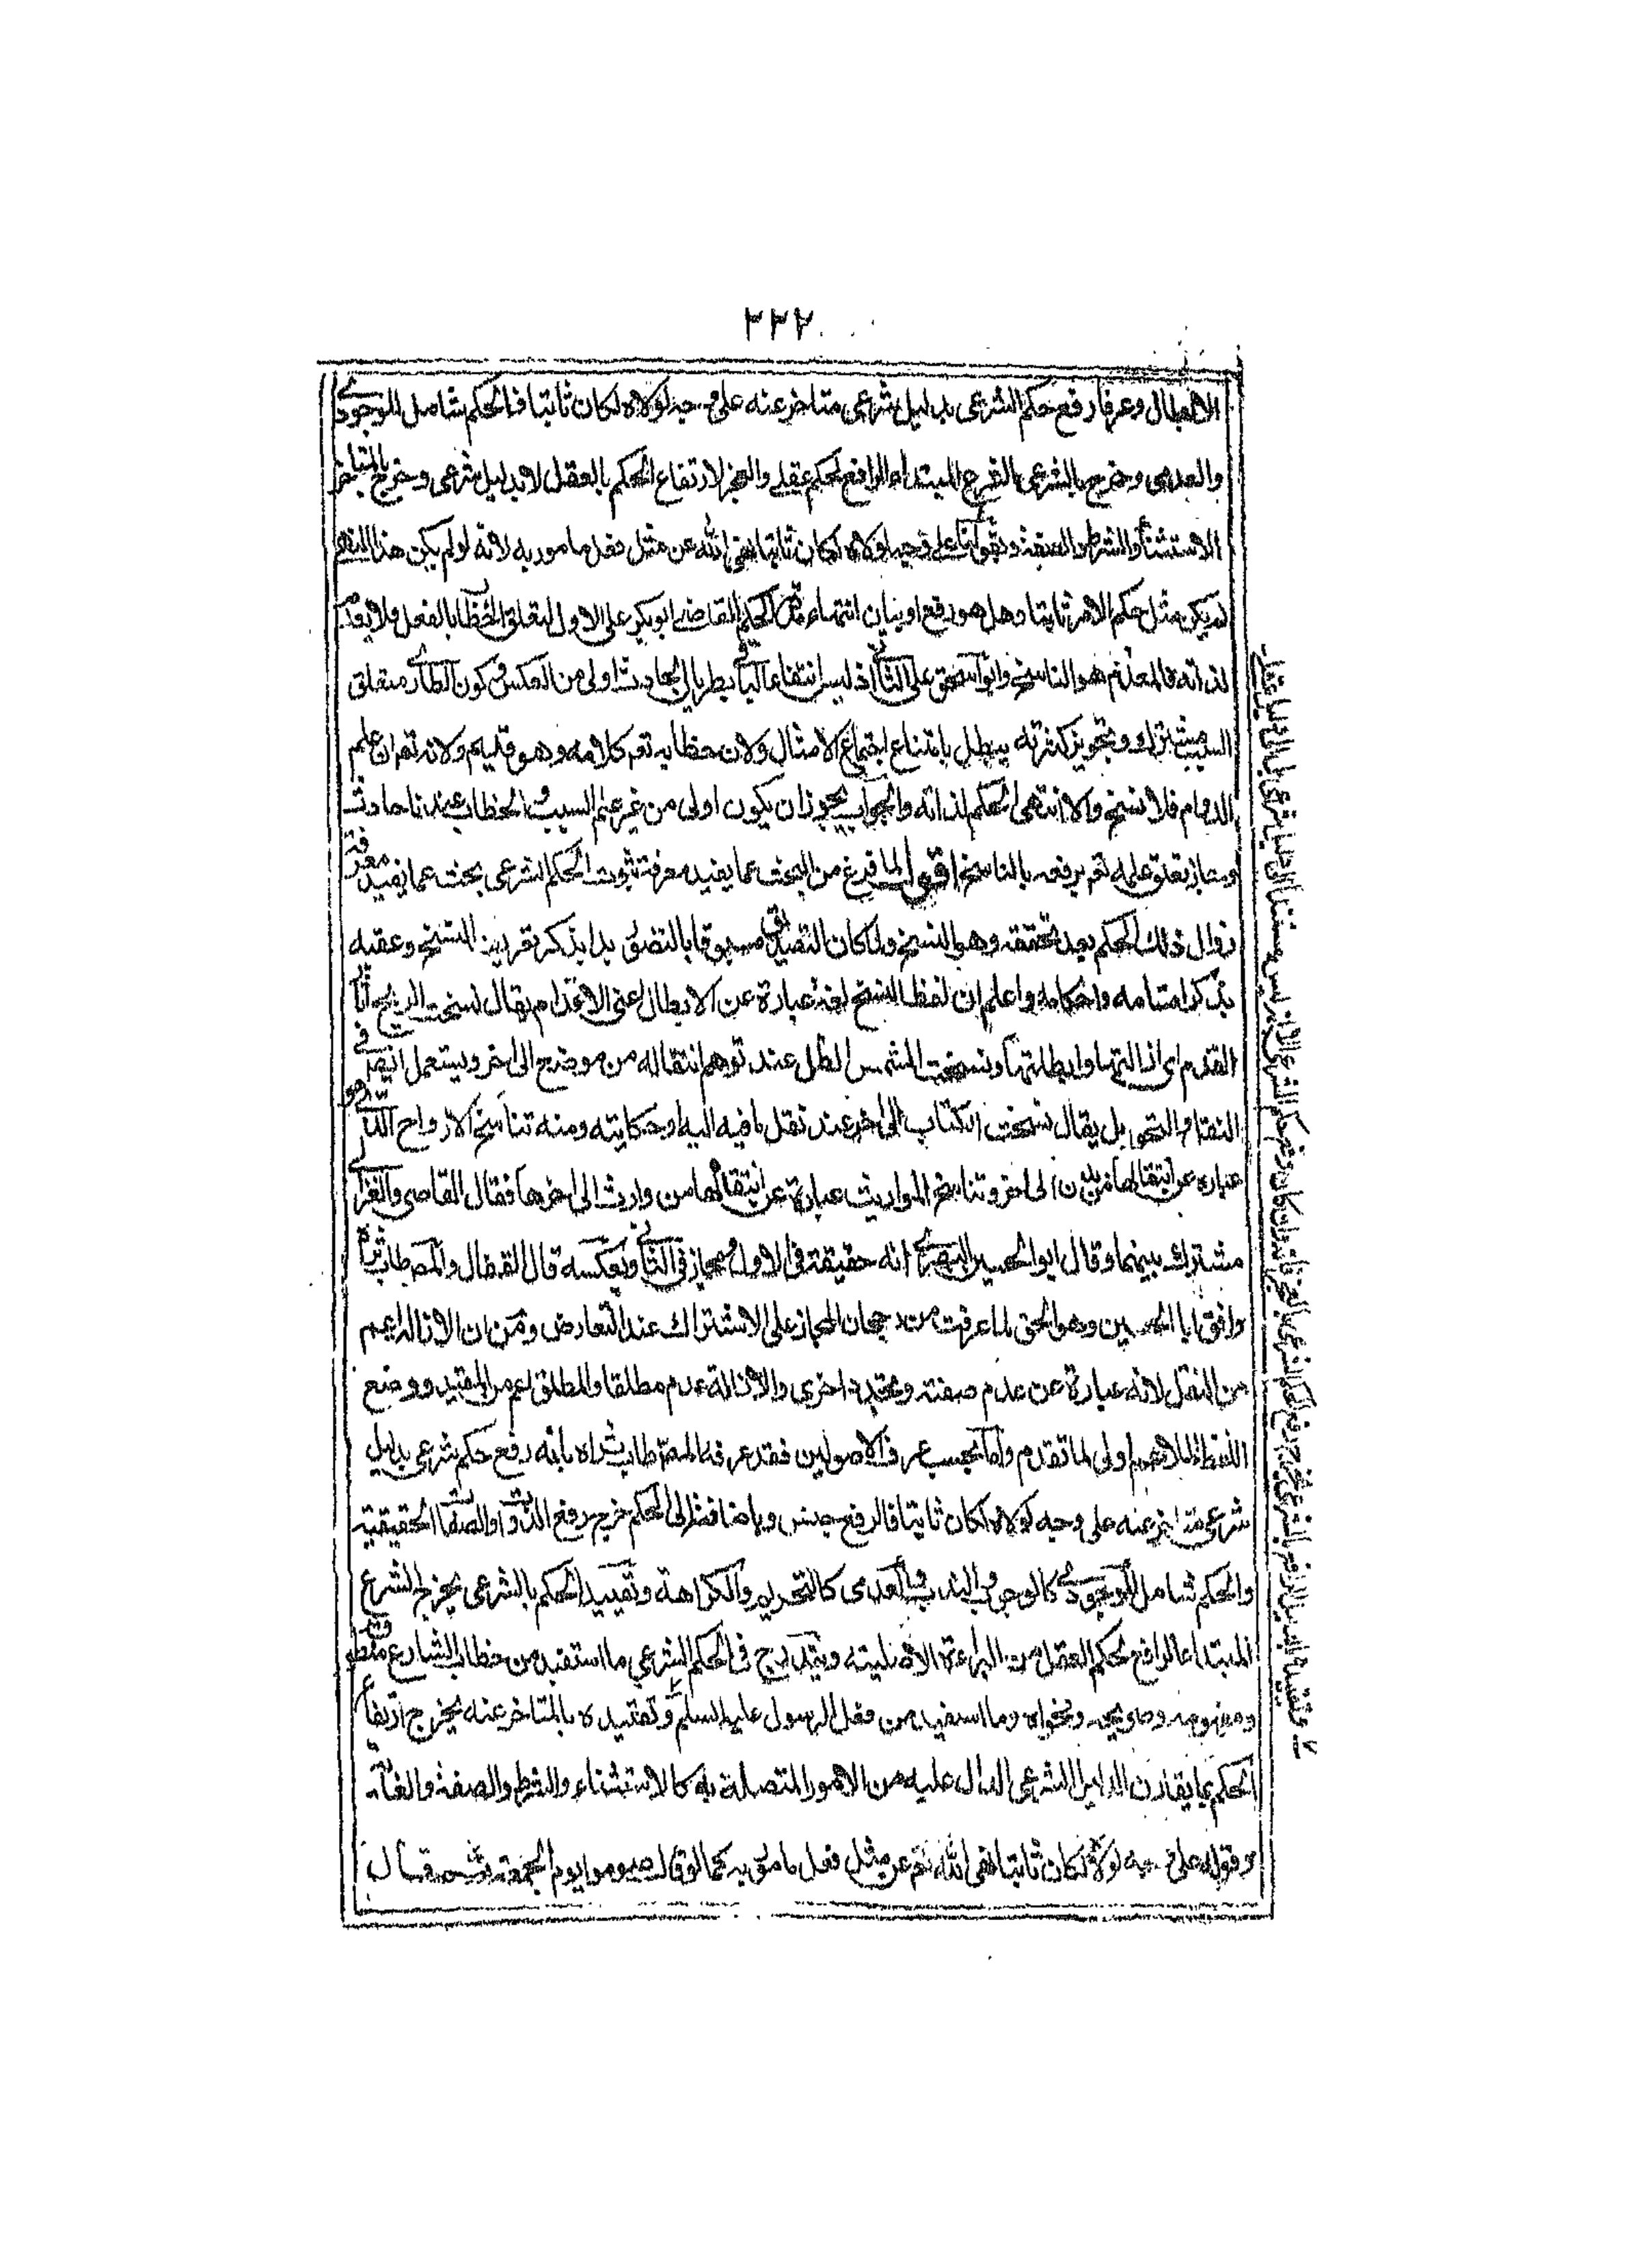 ٢٢٢
الابطال وعرفا رفع حكم الشرعى بدليل شرعى متاخر عنه على وجه لولاه لكان ثابتا فالحكم شامل للوجودى
والعدمى وخرج بالشرعى بالشرع المبتداء الرافع لحكم عقلى والعجز لارتفاع الحكم بالعقل لا بدليل شرعى وخرج بالمتاخر
الاستثناء والشرط والصفة وبقولنا على وجه لولاه لكان ثابتا نهى الله عن مثل فعل مامور به لانه لو لم يكن هذا النهى
لم يكن مثل حكم الامر ثابتا وهل هو رفع او بيان انتهاء مدة الحكم القاضى ابو بكر على الاول لتعلق الخطاب بالفعل فلا يعدم
لذاته فالمعدم هو الناسخ وابو اسحق على الثانى اذ ليس انتفاء الباقى بطريان الحادث اولى من العكس وكون الطارى متعلق
السبب مشترك وتجويز كثرته يبطل بامتناع اجتماع الامثال ولان خطابه تعم كلامه وهو قديم ولانه تعم ان علم
الدوام فلا نسخ والا انتهى الحكم لذاته والجواب يجوز ان يكون اولى من غير علم السبب والخطاب عندنا حادث
وجاز تعلق علمه تعم برفعه بالناسخ اقول لما فرغ من البحث عما يفيد معرفة ثبوت الحكم الشرعى بحث عما يفيد معرفة
زوال ذلك الحكم بعد تحققه وهو النسخ ولما كان التصديق مسبوقا بالتصور بدا بذكر تعريف النسخ وعقبه
بذكر اقسامه واحكامه واعلم ان لفظ النسخ لغة عبارة عن الابطال اعنى الاعدام يقال نسخت الريح آثار
القدم اى ازالتها وابطلتها ونسخت الشمس الظل عند توهم انتقاله من موضع الى اخر ويستعمل ايضا فى
النقل والتحويل يقال نسخت الكتاب الى اخر عند نقل ما فيه اليه او حكايته ومنه تناسخ الارواح الذى هو
عبارة عن انتقالها من بدن الى اخر وتناسخ المواريث عبارة عن انتقالها من وارث الى اخرها فقال القاضى والغزالى
مشترك بينهما وقال ابو الحسين البصرى انه حقيقة فى الاول ومجاز فى الثانى وبعكسه قال القفال والمص طاب ثراه
وافق ابا الحسين وهو الحق لما عرفت من رجحان المجاز على الاشتراك عند التعارض ومن ان الازالة اعم
من النقل لانه عبارة عن عدم صفة وتجدد اخرى والازالة عدم مطلقا والمطلق اعم من المقيد ووضع
اللفظ للاعم اولى لما تقدم واما بحسب عرف الاصوليين فقد عرفه المص طاب ثراه بانه رفع حكم شرعى بدليل
شرعى متاخر عنه على وجه لولاه لكان ثابتا فالرفع جنس وباضافته الى الحكم خرج رفع الذوات والصفات الحقيقية
والحكم شامل للوجودى كالوجوب والندب والعدمى كالتحريم والكراهة وتقييد الحكم بالشرعى يخرج الشرع
المبتداء الرافع لحكم العقل من البراءة الاصلية ويندرج فى الحكم الشرعى ما استفيد من خطاب الشارع منطوقه
ومفهومه وصريحه وفحواه وما استفيد من فعل الرسول عليه السلم وتقييده بالمتاخر عنه يخرج ارتفاع
الحكم بما يقارن الدليل الشرعى الدال عليه من الامور المتصلة به كالاستثناء والشرط والصفة والغاية
وقوله على وجه لولاه لكان ثابتا نهى الله تعم عن مثل فعل مامور به كما لو قال صوموا يوم الجمعة ثم قال